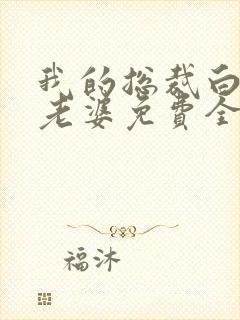 我的总裁白
老婆免费全
福沐